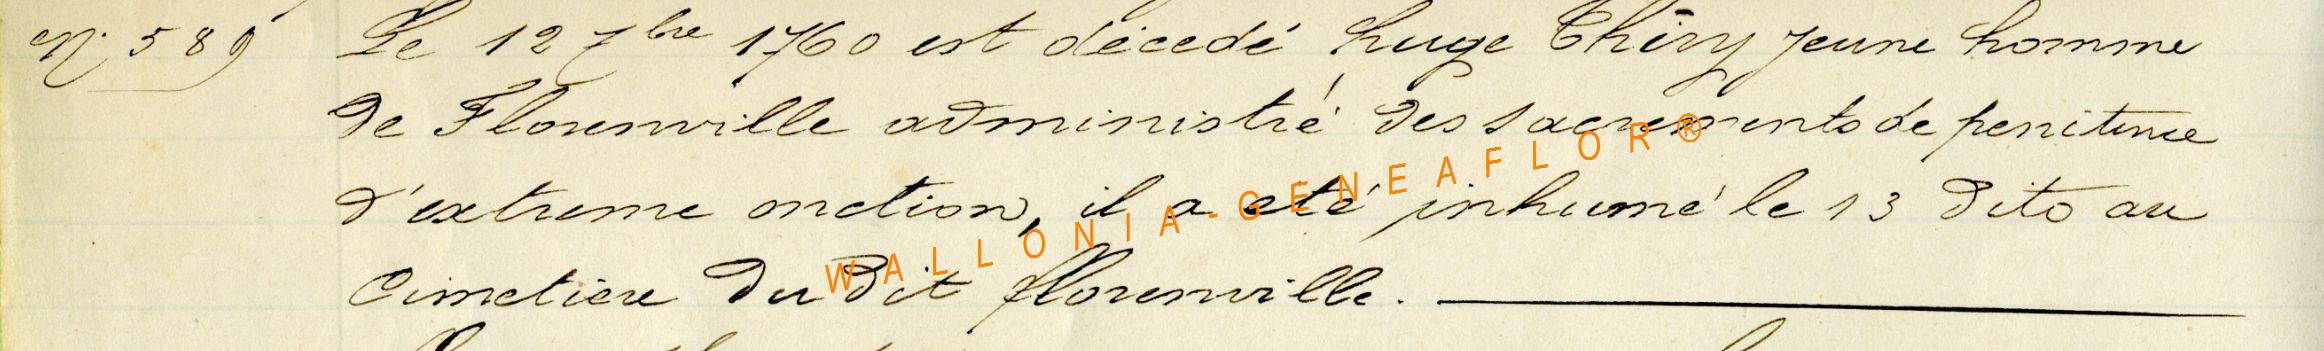 N° 589 Le 12 7bre 1760 est décedé huge Thiry jeune homme
de Florenville administré des sacrements de penitence
d'extreme onction, il a été inhumé le 13 dito au
Cimetiere du dit florenville.
WALLONIA-GENEAFLOR®